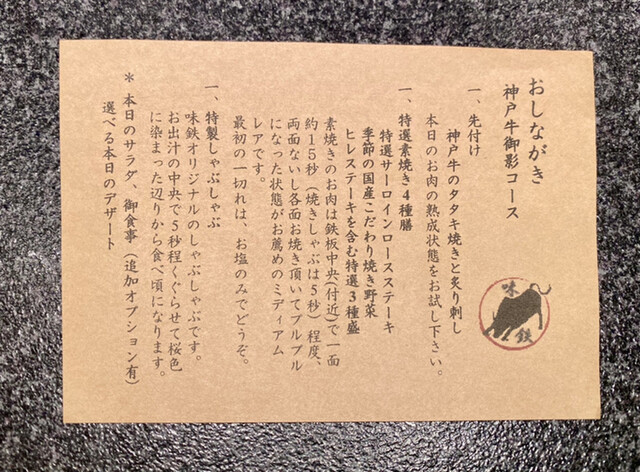 おしながき
神戸牛御影コース
一、先付け
神戸牛のタタキ焼きと炙り刺し
本日のお肉の熟成状態をお試し下さい。
一、特選素焼き4種膳
特選サーロインロースステーキ
季節の国産こだわり焼き野菜
ヒレステーキを含む特選3種盛
素焼きのお肉は鉄板中央(付近)で一面
約15秒(焼きしゃぶは5秒)程度、
両面ないし各面お焼き頂いてプルプル
になった状態がお薦めのミディアム
レアです。
最初の一切れは、お塩のみでどうぞ。
一、特製しゃぶしゃぶ
味鉄オリジナルのしゃぶしゃぶです。
お出汁の中央で5秒程くぐらせて桜色
に染まった辺りから食べ頃になります。
＊本日のサラダ、御食事(追加オプション有)
選べる本日のデザート
味鉄